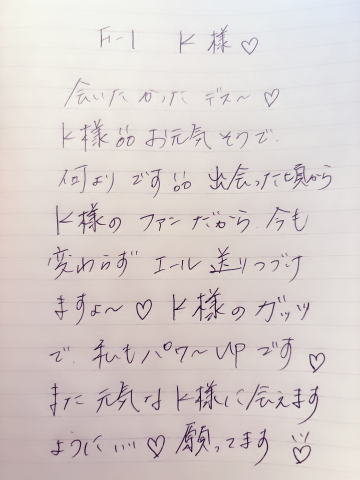 F-1 K様♡
会いたかったデス〜♡
K様 お元気そうで、
何よりです 出会った頃から
K様のファンだから、今も
変わらずエール送りつづけ
ますょ〜♡ K様のガッツ
で、私もパワ〜UPです♡
また元気なK様に会えます
ように…♡願ってます♡